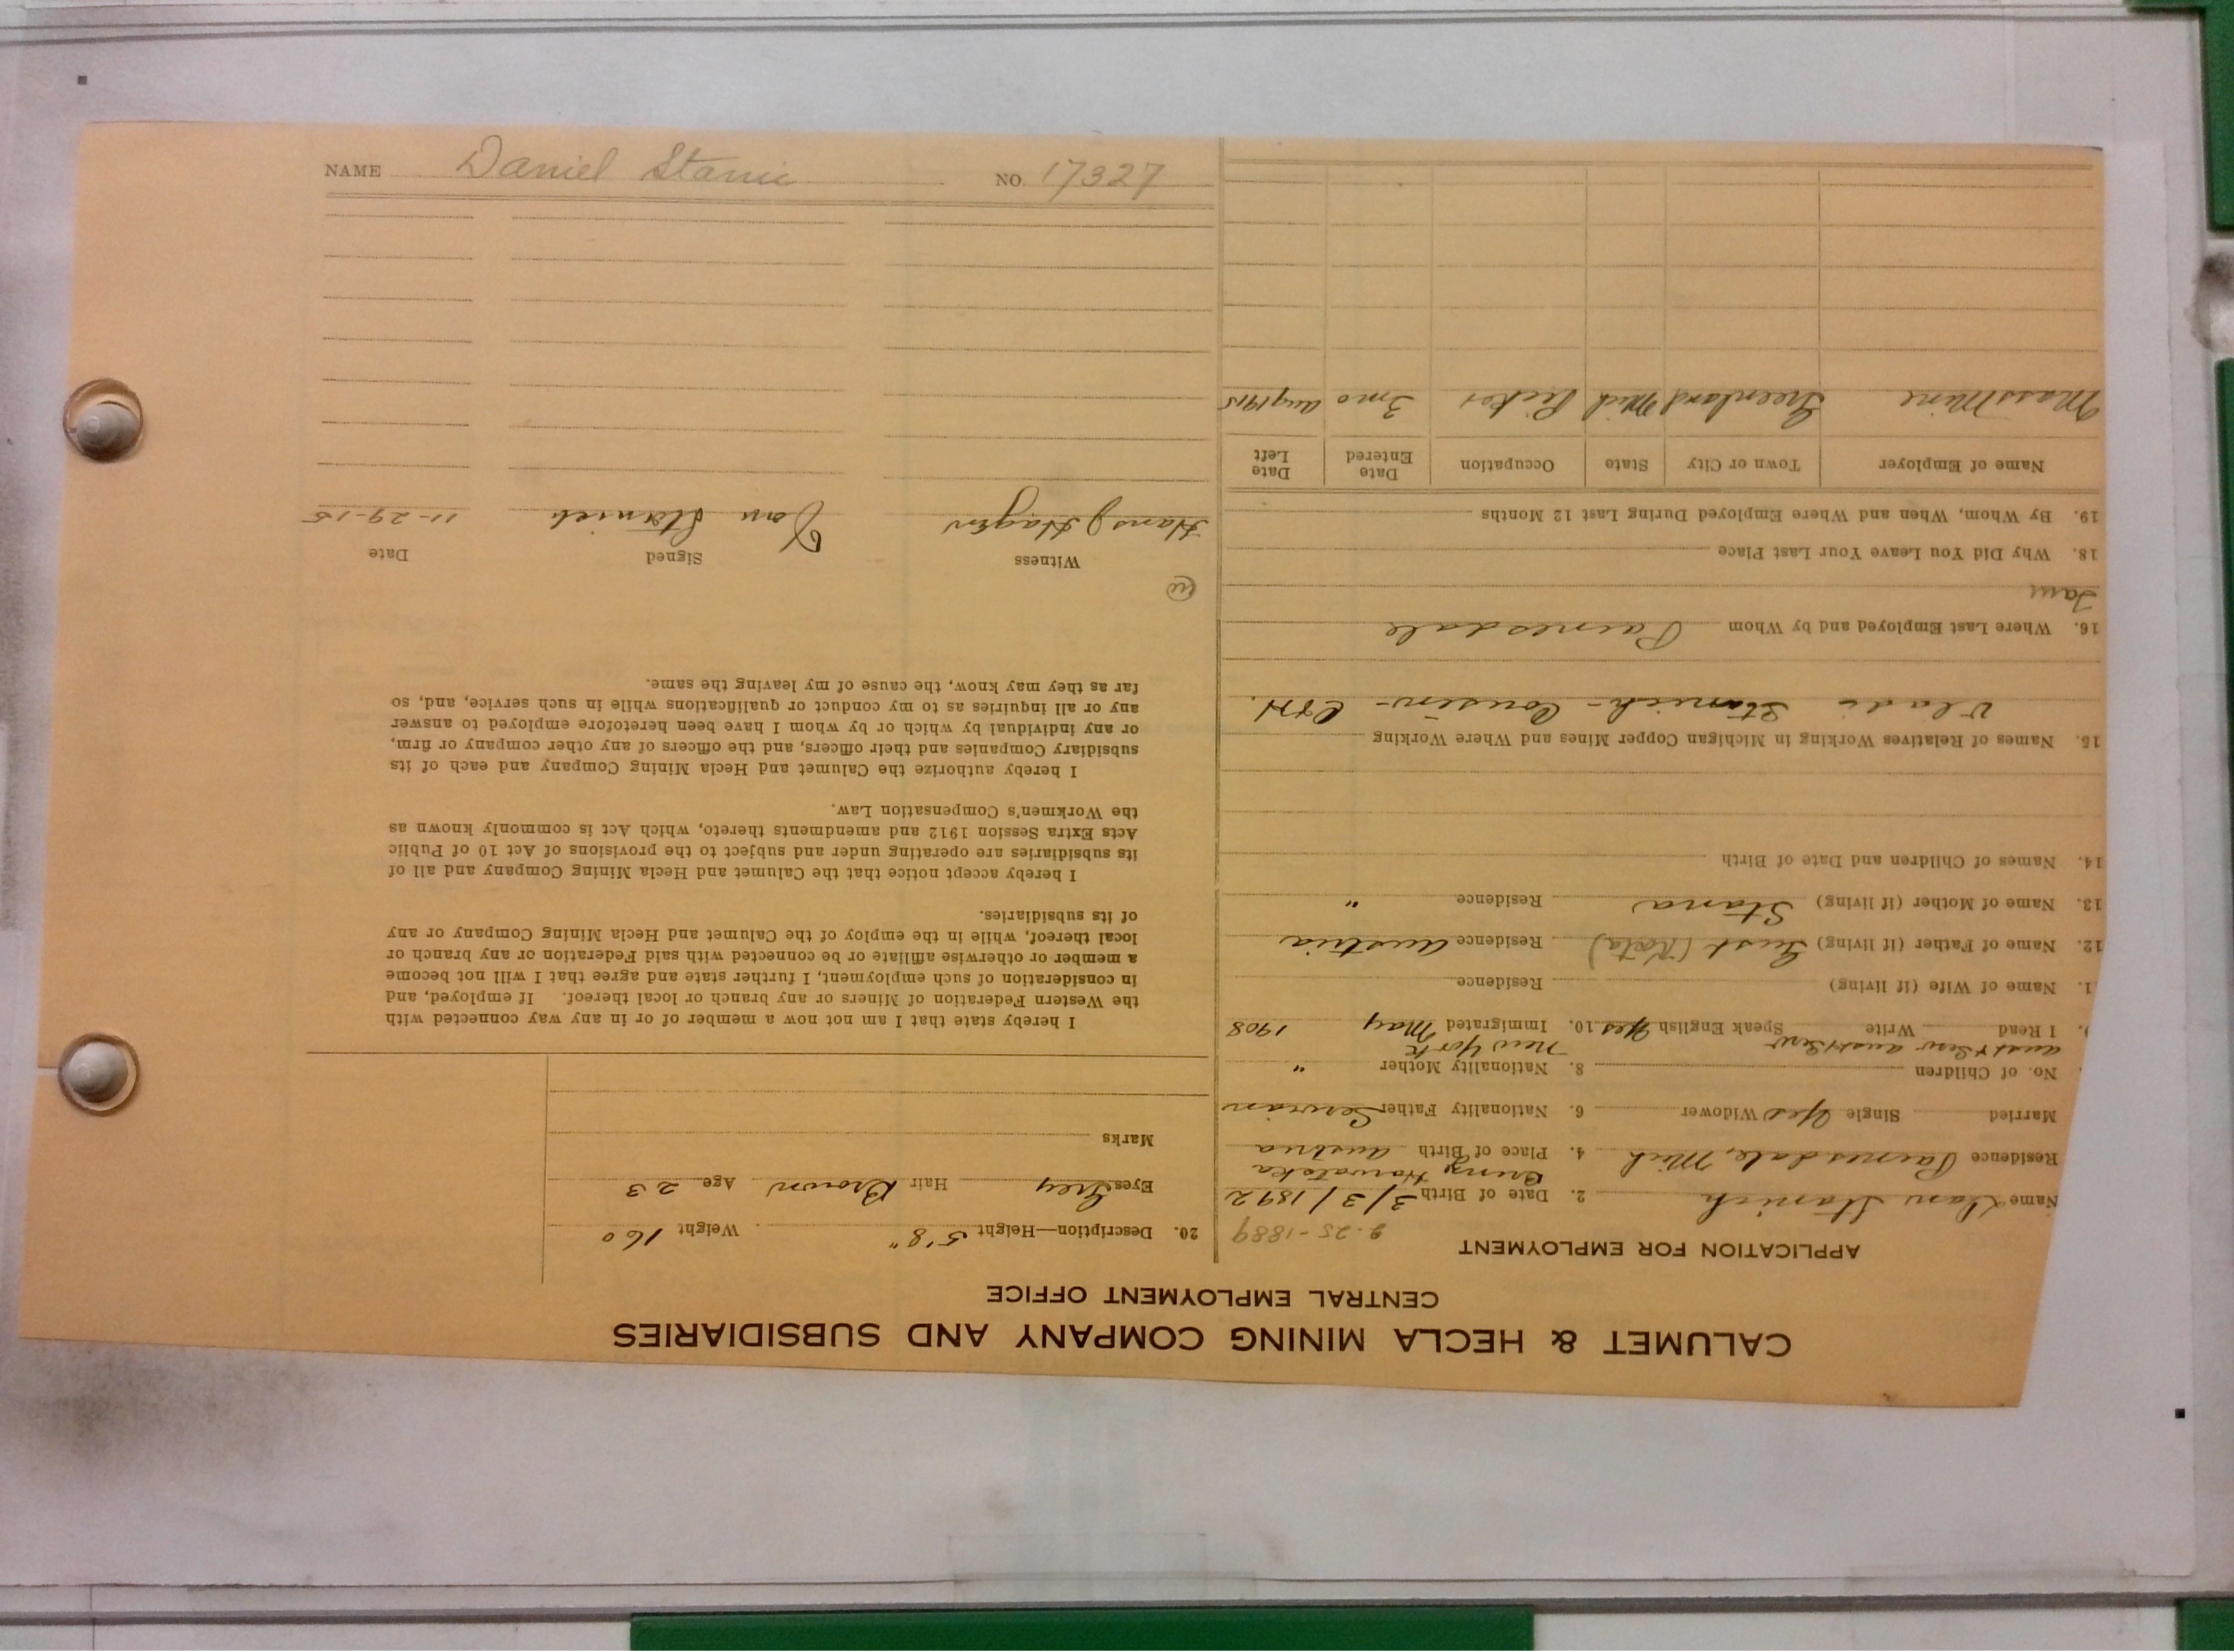 NAME Daniel Stanic NO. 17327
CALUMET & HECLA MINING COMPANY AND SUBSIDIARIES
CENTRAL EMPLOYMENT OFFICE
APPLICATION FOR EMPLOYMENT
2-25-1889
Name Dan Stanich 2. Date of Birth 3/3/1892
Residence Painesdale, Mich 4. Place of Birth Austria
Married Single Yes Widower 6. Nationality Father Servian
No. of Children 8. Nationality Mother "
New York
I Read Write Speak English Yes 10. Immigrated May 1908
1. Name of Wife (if living) Residence
12. Name of Father (if living) Residence Austria
13. Name of Mother (if living) Stana Residence "
14. Names of Children and Date of Birth
15. Names of Relatives Working in Michigan Copper Mines and Where Working
Vladi Stanich - Cousin - C&H.
16. Where Last Employed and by Whom Painesdale
18. Why Did You Leave Your Last Place
19. By Whom, When and Where Employed During Last 12 Months
Name of Employer Town or City State Occupation Date Entered Date Left
Mass Mine Greenland Mich Picker 3 mo Aug 1915
20. Description—Height 5'8" Weight 160
Eyes Grey Hair Brown Age 23
Marks
I hereby state that I am not now a member of or in any way connected with
the Western Federation of Miners or any branch or local thereof. If employed, and
in consideration of such employment, I further state and agree that I will not become
a member or otherwise affiliate or be connected with said Federation or any branch or
local thereof, while in the employ of the Calumet and Hecla Mining Company or any
of its subsidiaries.
I hereby accept notice that the Calumet and Hecla Mining Company and all of
its subsidiaries are operating under and subject to the provisions of Act 10 of Public
Acts Extra Session 1912 and amendments thereto, which Act is commonly known as
the Workmen's Compensation Law.
I hereby authorize the Calumet and Hecla Mining Company and each of its
subsidiary Companies and their officers, and the officers of any other company or firm,
or any individual by which or by whom I have been heretofore employed to answer
any or all inquiries as to my conduct or qualifications while in such service, and, so
far as they may know, the cause of my leaving the same.
Witness Signed Date
Hans J Hagen Dan Stanich 11-29-15